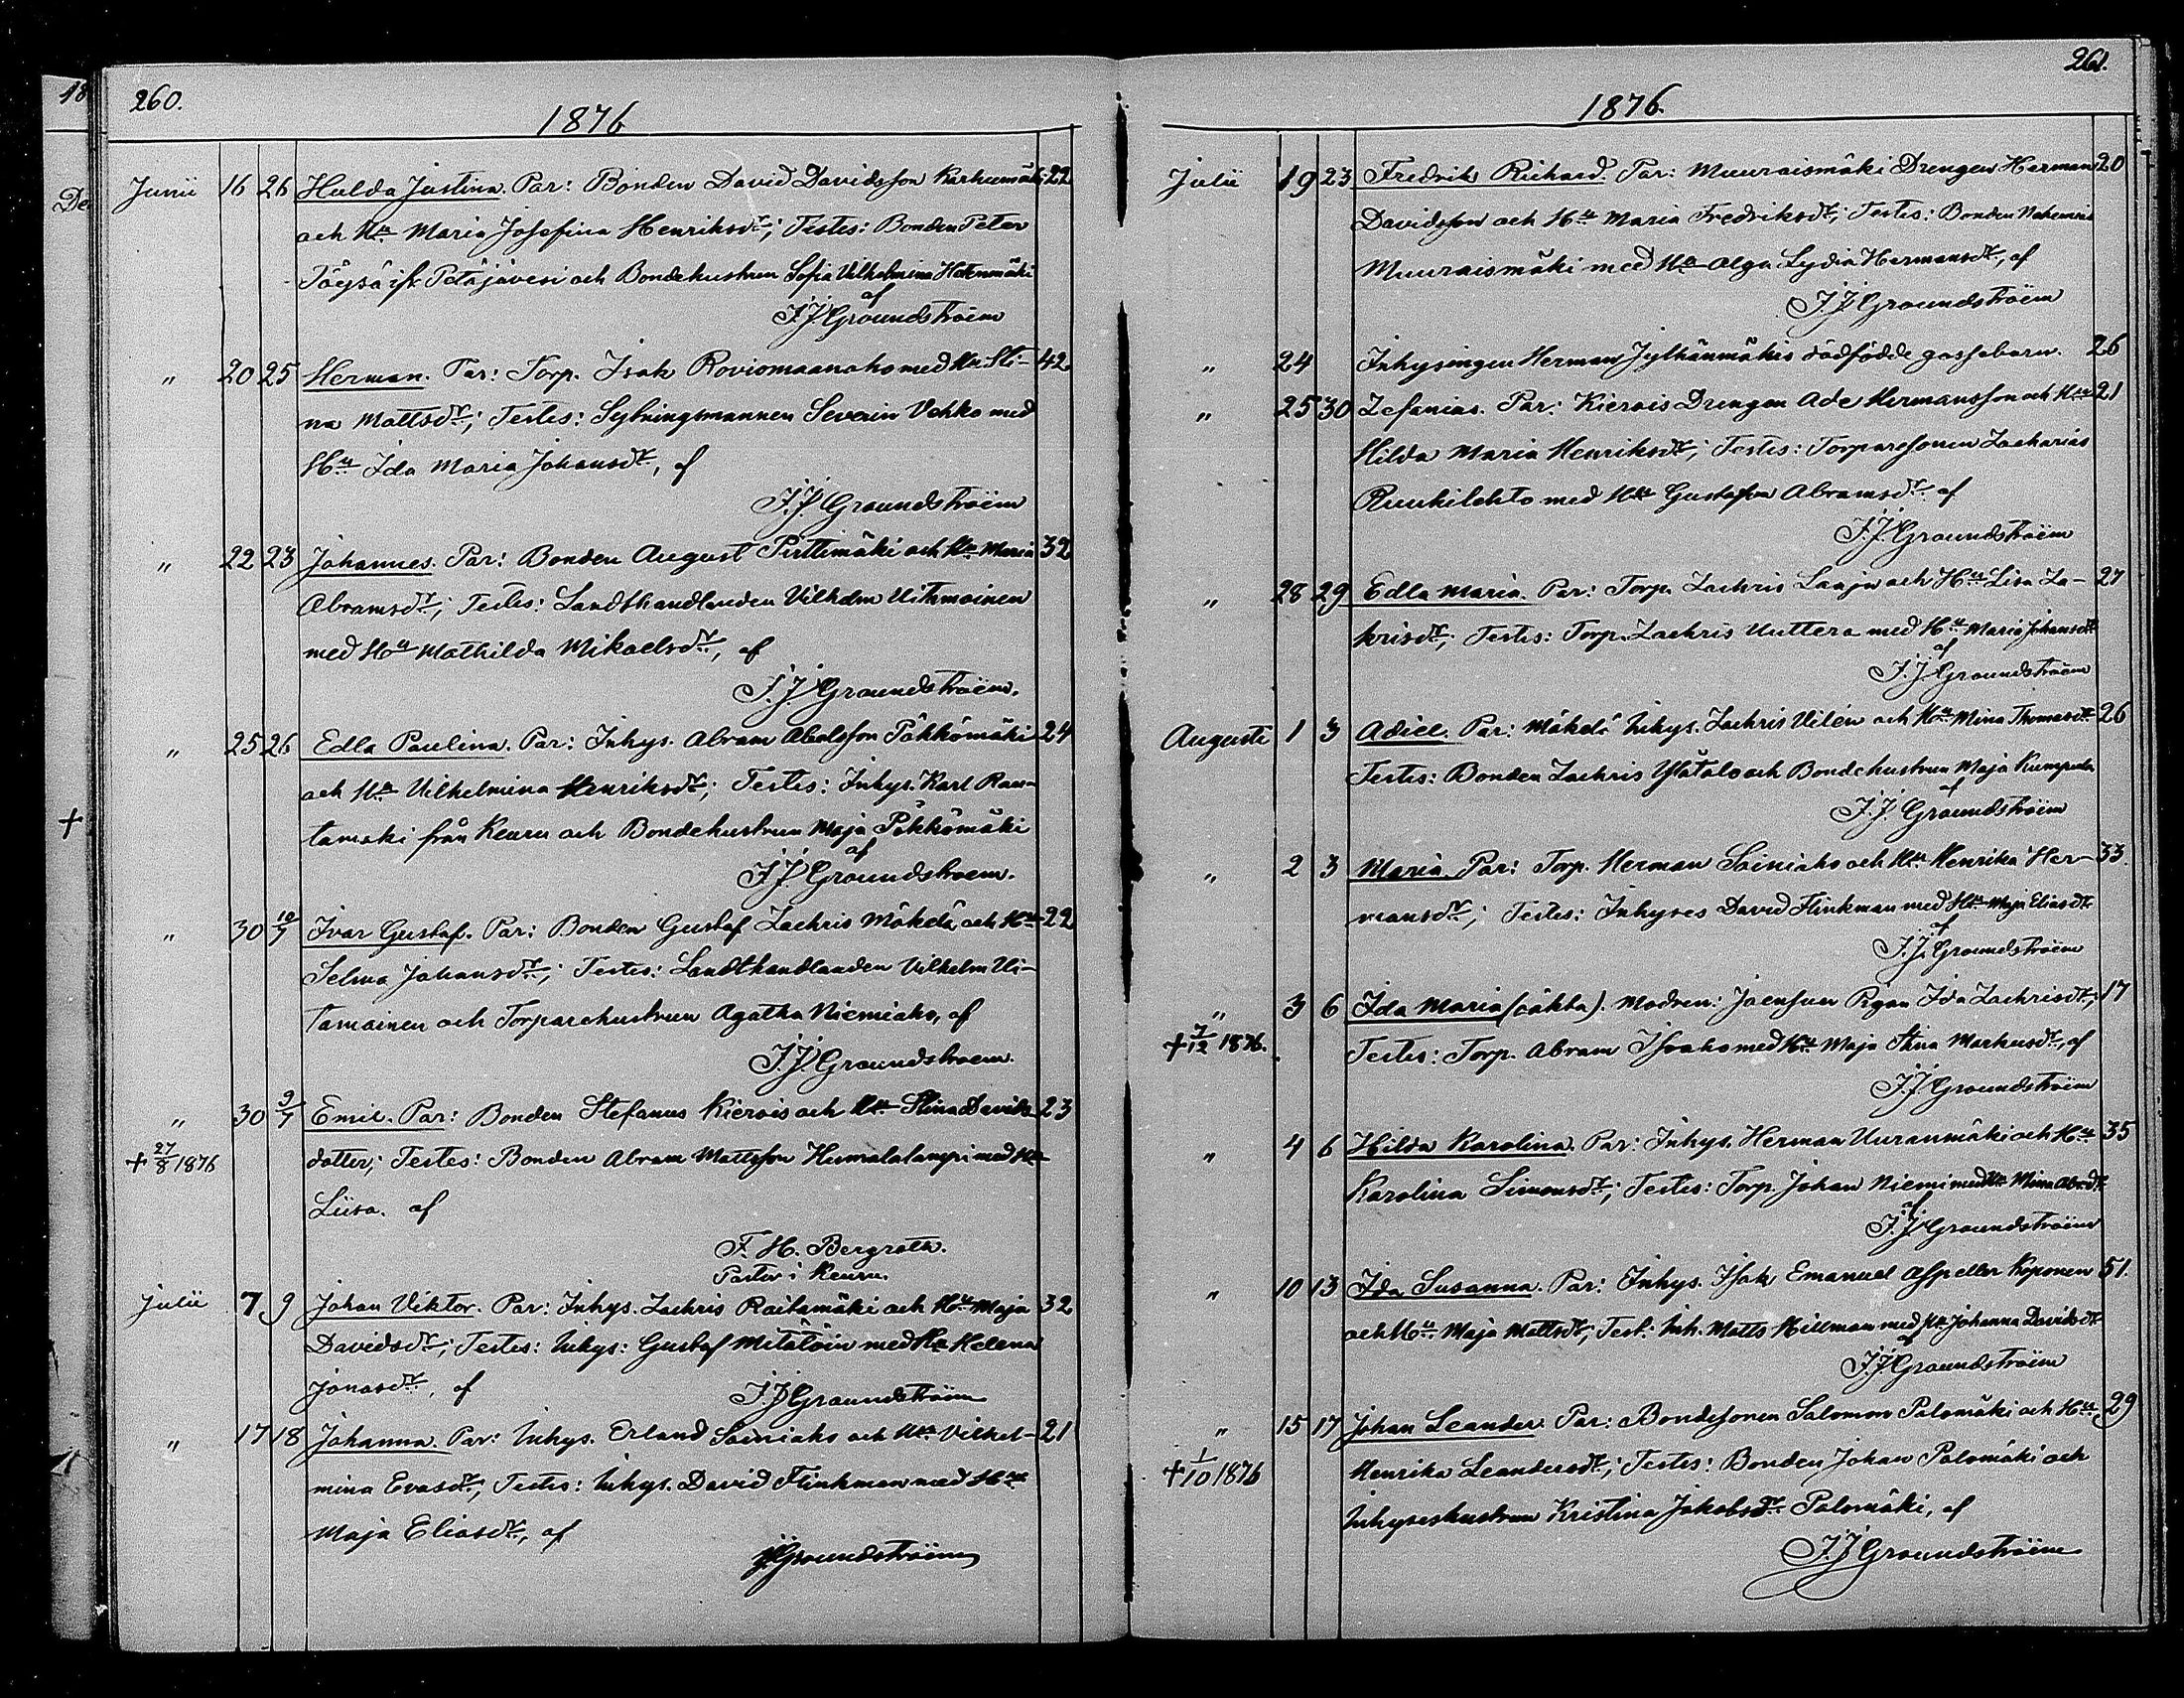 18
De
260.
1876
Junii 16 26 Hulda Justina. Par: Bonden David Davidsson Karhumäki 22
och Hu Maria Josefina Henriksdr; Testes: Bonden Peter
Töysä ifr. Petäjävesi och Bondehustrun Sofia Vilhelmina
af
F.J. Groundstroëm
" 20 25 Herman. Par: Torp. Isak Roviomaanaho med Hu Sti- 42
na Mattsdr; Testes: Sexningsmannen Severin Vehko med
Hu Ida Maria Johansdr, af
F.J. Groundstroëm
" 22 23 Johannes. Par: Bonden August Pirttimäki och Hu Maria 32
Abramsdr; Testes: Landthandlanden Vilhelm
med Hu Mathilda Mikaelsdr, af
F.J. Groundstroëm.
" 25 26 Edla Paulina. Par: Inhys. Abram Abelsson Pökkömäki 24
och Hu Vilhelmina Henriksdr; Testes: Inhys. Karl Rau-
tamaki från Keuru och Bondehustrun Maja Pökkömäki
af
F.J. Groundstroem.
" 30 10/7 Ivar Gustaf. Par: Bonden Gustaf Zachris Mäkelä och Hu 22
Selma Johansdr; Testes: Landthandlanden Vilhelm Ui-
tamainen och Torparehustrun Agatha Niemiaho, af
F.J. Groundstroem.
" 30 9/7 Emil. Par: Bonden Stefanus Kierois och Hu Stina Davids- 23
+ 27/8 1876 dotter; Testes: Bonden Abram Mattsson Humalalampi med Hu
Liisa. af
F. H. Bergroth.
Pastor i Keuru.
Julii 7 9 Johan Viktor. Par: Inhys. Zachris Raitamäki och Hu Maja 32
Davidsdr; Testes: Inhys: Gustaf Mitätöin med Hu Helena
Jonasdr, af F.J. Groundstroëm
" 17 18 Johanna. Par: Inhys. Erland Sainiaho och Hu Vilhel- 21
mina Evasdr; Testes: Inhys. David Flinkman med Hu
Maja Eliasdr, af
FJGroundstroëm
261.
1876.
Julii 19 23 Fredrik Richard. Par: Muuraismäki Drengen Herman 20
Davidsson och Hu Maria Fredriksdr; Testes: Bonden
Muuraismäki med Hu Olga Lydia Hermansdr, af
F.J. Groundstroëm
" 24 Inhysingen Herman Jylhänmäkis dödfödde gossebarn. 26
" 25 30 Zefanias. Par: Kierois Drengen Ade Hermansson och Hu 21
Hilda Maria Henriksdr; Testes: Torparesonen Zacharias
Ruuhilehto med Hu Gustafva Abramsdr. af
F.J. Groundstroëm
" 28 29 Edla Maria. Par: Torp. Zachris Laaja och Hu Lisa Za- 27
krisdr; Testes: Torp. Zachris Uuttera med Hu Maria Johansdr
af
F.J. Groundstroëm
Augusti 1 3 Adiel. Par: Mäkelä Inhys. Zachris Vilén och Hu Mina Thomasdr 26
Testes: Bonden Zachris Ylätalo och Bondehustrun Maja Kumpula
af
F.J. Groundstroëm
" 2 3 Maria. Par: Torp. Herman Sainiaho och Hu Henrika Her- 33.
mansdr; Testes: Inhyses David Flinkman med Hu Maja Eliasdr
af
F.J. Groundstroëm
" 3 6 Ida Maria (oäkta). Modren: Jaensuu Pigan Ida Zachrisdr; 17
+ 7/12 1876. Testes: Torp. Abram Isoaho med Hu Maja Stina Markusdr, af
F.J. Groundstroëm
" 4 6 Hilda Karolina. Par: Inhys. Herman Uuranmäki och Hu 35
Karolina Simonsdr; Testes: Torp. Johan Niemi med Hu Mina
af
F.J. Groundstroëm
" 10 13 Ida Susanna. Par: Inhys. Isak Emanuel Aspeller Koponen 51.
och Hu Maja Mattsdr; Test: Inh. Matts Hillman med Hu Johanna Davidsdr
af
F.J. Groundstroëm
" 15 17 Johan Leander. Par: Bondesonen Salomon Palomäki och Hu 29
+ 1/10 1876 Henrika Leandersdr; Testes: Bonden Johan Palomäki och
Inhyseshustrun Kristina Jakobsdr Palomäki, af
F.J. Groundstroëm